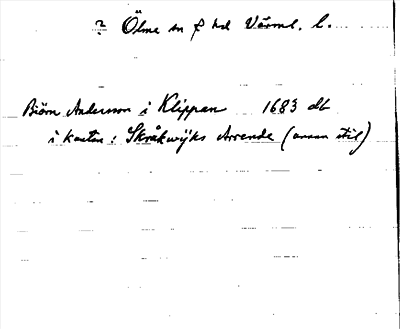 ? Ölme sn f hd Värml. l.
Biörn Andersson i Klippan 1683 db
i kanten: Skråkwijks Arrende (annan stil)